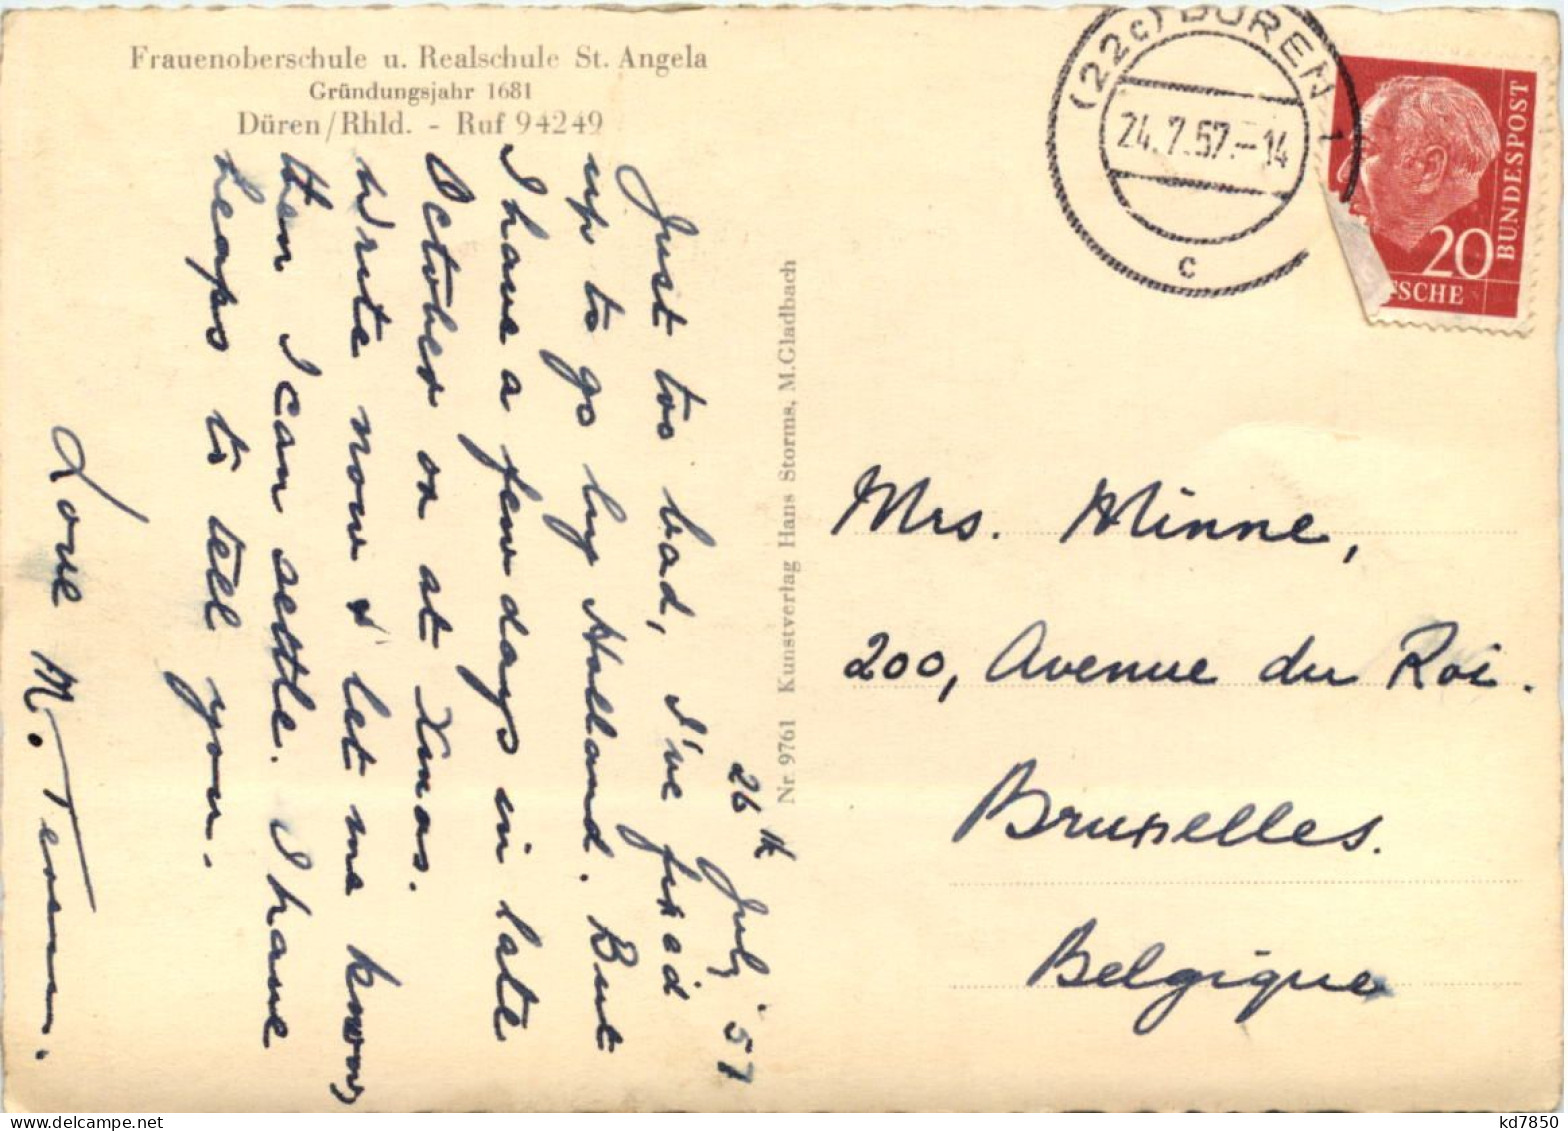 Frauenoberschule u. Realschule St. Angela
Gründungsjahr 1681
Düren/Rhld. - Ruf 94249
26th July '57
Just too bad, I've fixed
up to go by Holland. But
I have a few days in late
October or at Xmas.
Write now & let me know,
then I can settle. I have
heaps to tell you.
Love M.
Nr. 9761 Kunstverlag Hans Storms, M.Gladbach
(22c) DÜREN 1
24.7.57.-14
c
BUNDESPOST
20
TSCHE
Mrs. Minne,
200, Avenue du Roi.
Bruxelles.
Belgique
www.delcampe.net
kd7850